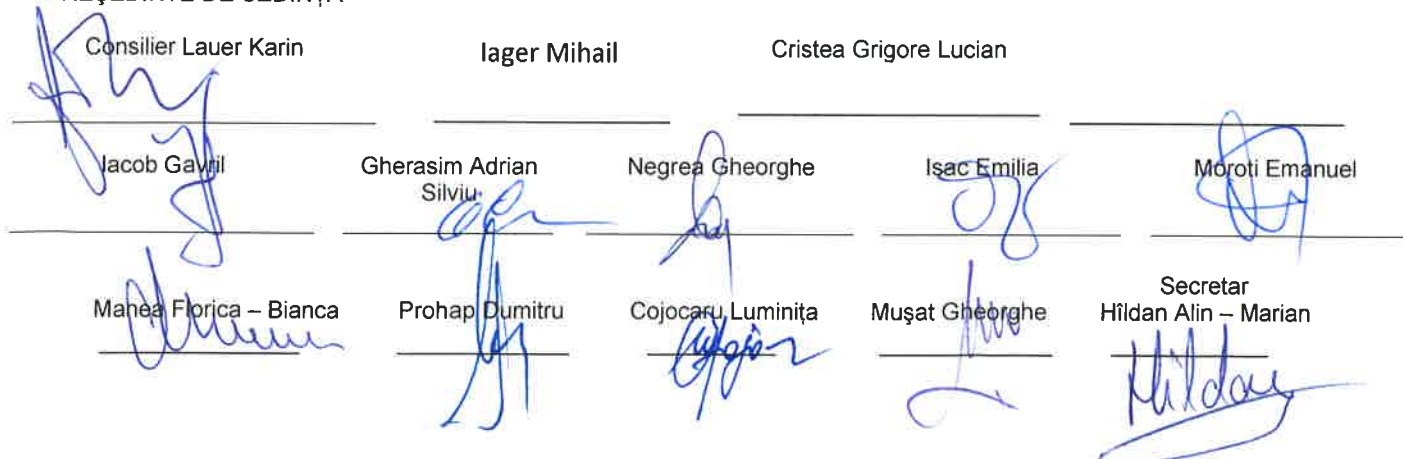 Consilier Lauer Karin Iager Mihail Cristea Grigore Lucian
Iacob Gavril Gherasim Adrian Negrea Gheorghe Isac Emilia Moroti Emanuel
Silviu
Secretar
Manea Florica – Bianca Prohap Dumitru Cojocaru Luminița Mușat Gheorghe Hîldan Alin – Marian
Hîldan